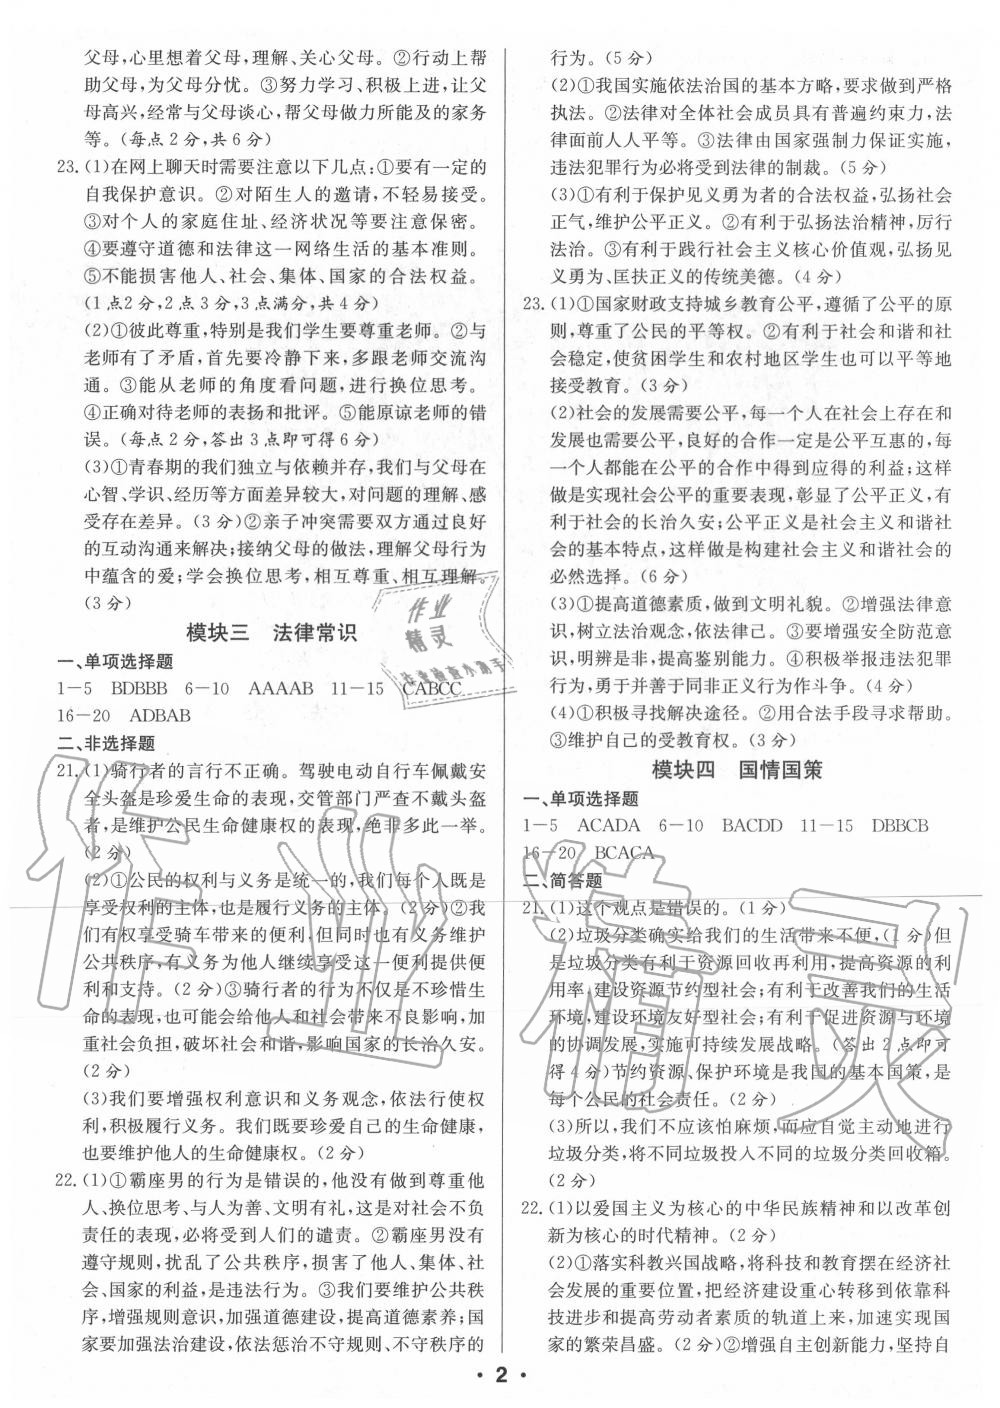 父母,心里想着父母,理解、关心父母。②行动上帮
助父母,为父母分忧。③努力学习、积极上进,让父
母高兴,经常与父母谈心,帮父母做力所能及的家务
等。(每点2分,共6分)
23.(1)在网上聊天时需要注意以下几点:①要有一定的
自我保护意识。②对陌生人的邀请,不轻易接受。
③对个人的家庭住址、经济状况等要注意保密。
④要遵守道德和法律这一网络生活的基本准则。
⑤不能损害他人、社会、集体、国家的合法权益。
(1点2分,2点3分,3点满分,共4分)
(2)①彼此尊重,特别是我们学生要尊重老师。②与
老师有了矛盾,首先要冷静下来,多跟老师交流沟
通。③能从老师的角度看问题,进行换位思考。
④正确对待老师的表扬和批评。⑤能原谅老师的错
误。(每点2分,答出3点即可得6分)
(3)①青春期的我们独立与依赖并存,我们与父母在
心智、学识、经历等方面差异较大,对问题的理解、感
受存在差异。(3分)②亲子冲突需要双方通过良好
的互动沟通来解决;接纳父母的做法,理解父母行为
中蕴含的爱;学会换位思考,相互尊重、相互理解。
(3分)
模块三 法律常识
一、单项选择题
1—5 BDBBB 6—10 AAAAB 11—15 CABCC
16—20 ADBAB
二、非选择题
21.(1)骑行者的言行不正确。驾驶电动自行车佩戴安
全头盔是珍爱生命的表现,交管部门严查不戴头盔
者,是维护公民生命健康权的表现,绝非多此一举。
(2分)
(2)①公民的权利与义务是统一的,我们每个人既是
享受权利的主体,也是履行义务的主体。(2分)②我
们有权享受骑车带来的便利,但同时也有义务维护
公共秩序,有义务为他人继续享受这一便利提供便
利和支持。(2分)③骑行者的行为不仅是不珍惜生
命的表现,也可能会给他人和社会带来不良影响,加
重社会负担,破坏社会和谐,影响国家的长治久安。
(2分)
(3)我们要增强权利意识和义务观念,依法行使权
利,积极履行义务。我们既要珍爱自己的生命健康,
也要维护他人的生命健康权。(2分)
22.(1)①霸座男的行为是错误的,他没有做到尊重他
人、换位思考、与人为善、文明有礼,这是对社会不负
责任的表现,必将受到人们的谴责。②霸座男没有
遵守规则,扰乱了公共秩序,损害了他人、集体、社
会、国家的利益,是违法行为。③我们要维护公共秩
序,增强规则意识,加强道德建设,提高道德素养;国
家要加强法治建设,依法惩治不守规则、不守秩序的
行为。(5分)
(2)①我国实施依法治国的基本方略,要求做到严格
执法。②法律对全体社会成员具有普遍约束力,法
律面前人人平等。③法律由国家强制力保证实施,
违法犯罪行为必将受到法律的制裁。(5分)
(3)①有利于保护见义勇为者的合法权益,弘扬社会
正气,维护公平正义。②有利于弘扬法治精神,厉行
法治。③有利于践行社会主义核心价值观,弘扬见
义勇为、匡扶正义的传统美德。(4分)
23.(1)①国家财政支持城乡教育公平,遵循了公平的原
则,尊重了公民的平等权。②有利于社会和谐和社
会稳定,使贫困学生和农村地区学生也可以平等地
接受教育。(3分)
(2)社会的发展需要公平,每一个人在社会上存在和
发展也需要公平,良好的合作一定是公平互惠的,每
一个人都能在公平的合作中得到应得的利益;这样
做是实现社会公平的重要表现,彰显了公平正义,有
利于社会的长治久安;公平正义是社会主义和谐社
会的基本特点,这样做是构建社会主义和谐社会的
必然选择。(6分)
(3)①提高道德素质,做到文明礼貌。②增强法律意
识,树立法治观念,依法律己。③要增强安全防范意
识,明辨是非,提高觉悟。④积极举报违法犯罪
行为,勇于并善于同非正义行为作斗争。(4分)
(4)①积极寻找解决途径。②用合法手段寻求帮助。
③维护自己的受教育权。(3分)
模块四 国情国策
一、单项选择题
1—5 ACADA 6—10 BACDD 11—15 DBBCB
16—20 BCACA
二、简答题
21.(1)这个观点是错误的。(1分)
(2)垃圾分类确实给我们的生活带来不便,(1分)但
是垃圾分类有利于资源回收再利用,提高资源的利
用率,建设资源节约型社会;有利于改善我们的生活
环境,建设环境友好型社会;有利于促进资源与环境
的协调发展,实施可持续发展战略。(答出2点即可
得4分)节约资源、保护环境是我国的基本国策,是
每个公民的社会责任。(2分)
(3)所以,我们不应该怕麻烦,而应自觉主动地进行
垃圾分类,将不同垃圾投入不同的垃圾分类回收箱。
(2分)
22.(1)以爱国主义为核心的中华民族精神和以改革创
新为核心的时代精神。(2分)
(2)①落实科教兴国战略,将科技和教育摆在经济社
会发展的重要位置,把经济建设重心转移到依靠科
技进步和提高劳动者素质的轨道上来,加速实现国
家的繁荣昌盛。(2分)②增强自主创新能力,坚持自
· 2 ·
作业
精灵
作业检查小助手
作业精灵